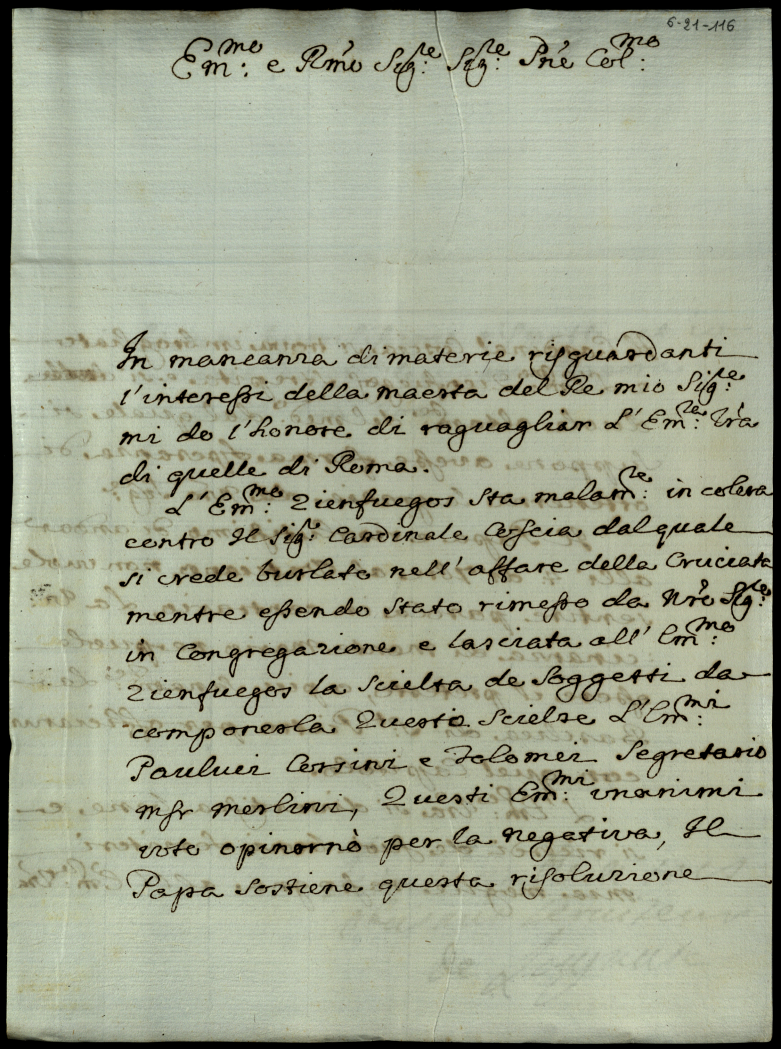 6-21-116
Em.mo e Rmo Sig.re Sig.re Pne Col.mo
In mancanza di materie risguardanti
l'interessi della maesta del Re mio Sig.re
mi do l'honore di raguagliar L'Em.re Vrã
di quelle di Roma.
L'Em.mo Zienfuegos sta malam.te in colera
contro Il Sig.r Cardinale Coscia dal quale
si crede burlato nell'affare della Cruciata
mentre essendo stato rimesso da Nro Sig.re
in Congregazione e lasciata all'Em.mo
Zienfuegos la scielta de Soggetti da
componerla Questo scielse L'Em.mi
Pauluci Corsini e Tolomei Segretario
Msr Merlini, Questi Em.mi unanimi
voto opinornò per la negativa, Il
Papa sostiene questa risoluzione